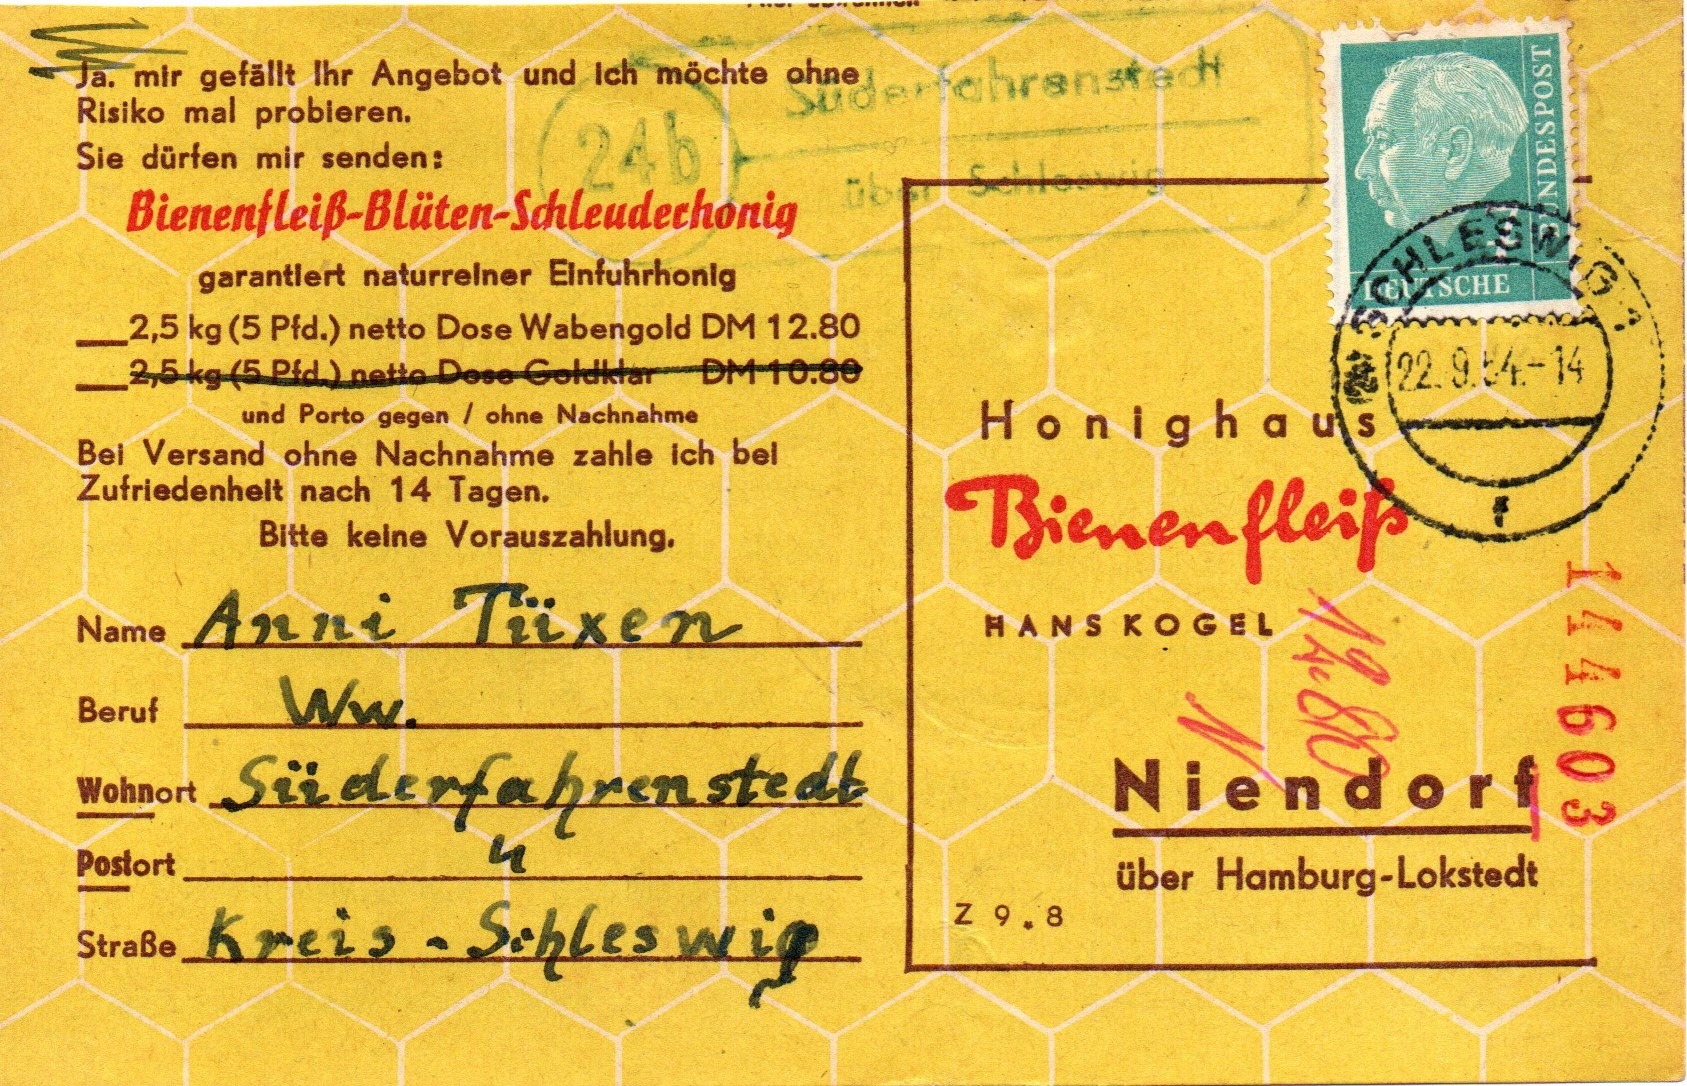 Ja. mir gefällt Ihr Angebot und ich möchte ohne
Risiko mal probieren.
Sie dürfen mir senden:
Bienenfleiß-Blüten-Schleuderhonig
garantiert naturreiner Einfuhrhonig
2,5 kg (5 Pfd.) netto Dose Wabengold DM 12.80
2,5 kg (5 Pfd.) netto Dose Goldklar DM 10.80
und Porto gegen / ohne Nachnahme
Bei Versand ohne Nachnahme zahle ich bei
Zufriedenheit nach 14 Tagen.
Bitte keine Vorauszahlung.
Name Anni Tüxen
Beruf Ww.
Wohnort Süderfahrenstedt
Postort "
Straße Kreis - Schleswig
24b
Süderfahrenstedt
über Schleswig
DEUTSCHE
BUNDESPOST
SCHLESWIG 1
22.9.54.-14
f
Honighaus
Bienenfleiß
HANS KOGEL
Niendorf
über Hamburg-Lokstedt
Z 9.8
144603